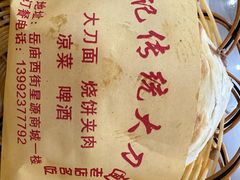 记传统大刀
大刀面 烧饼夹肉
凉菜 啤酒
地址：岳庙西街星源商城一楼
订餐电话：13992377792